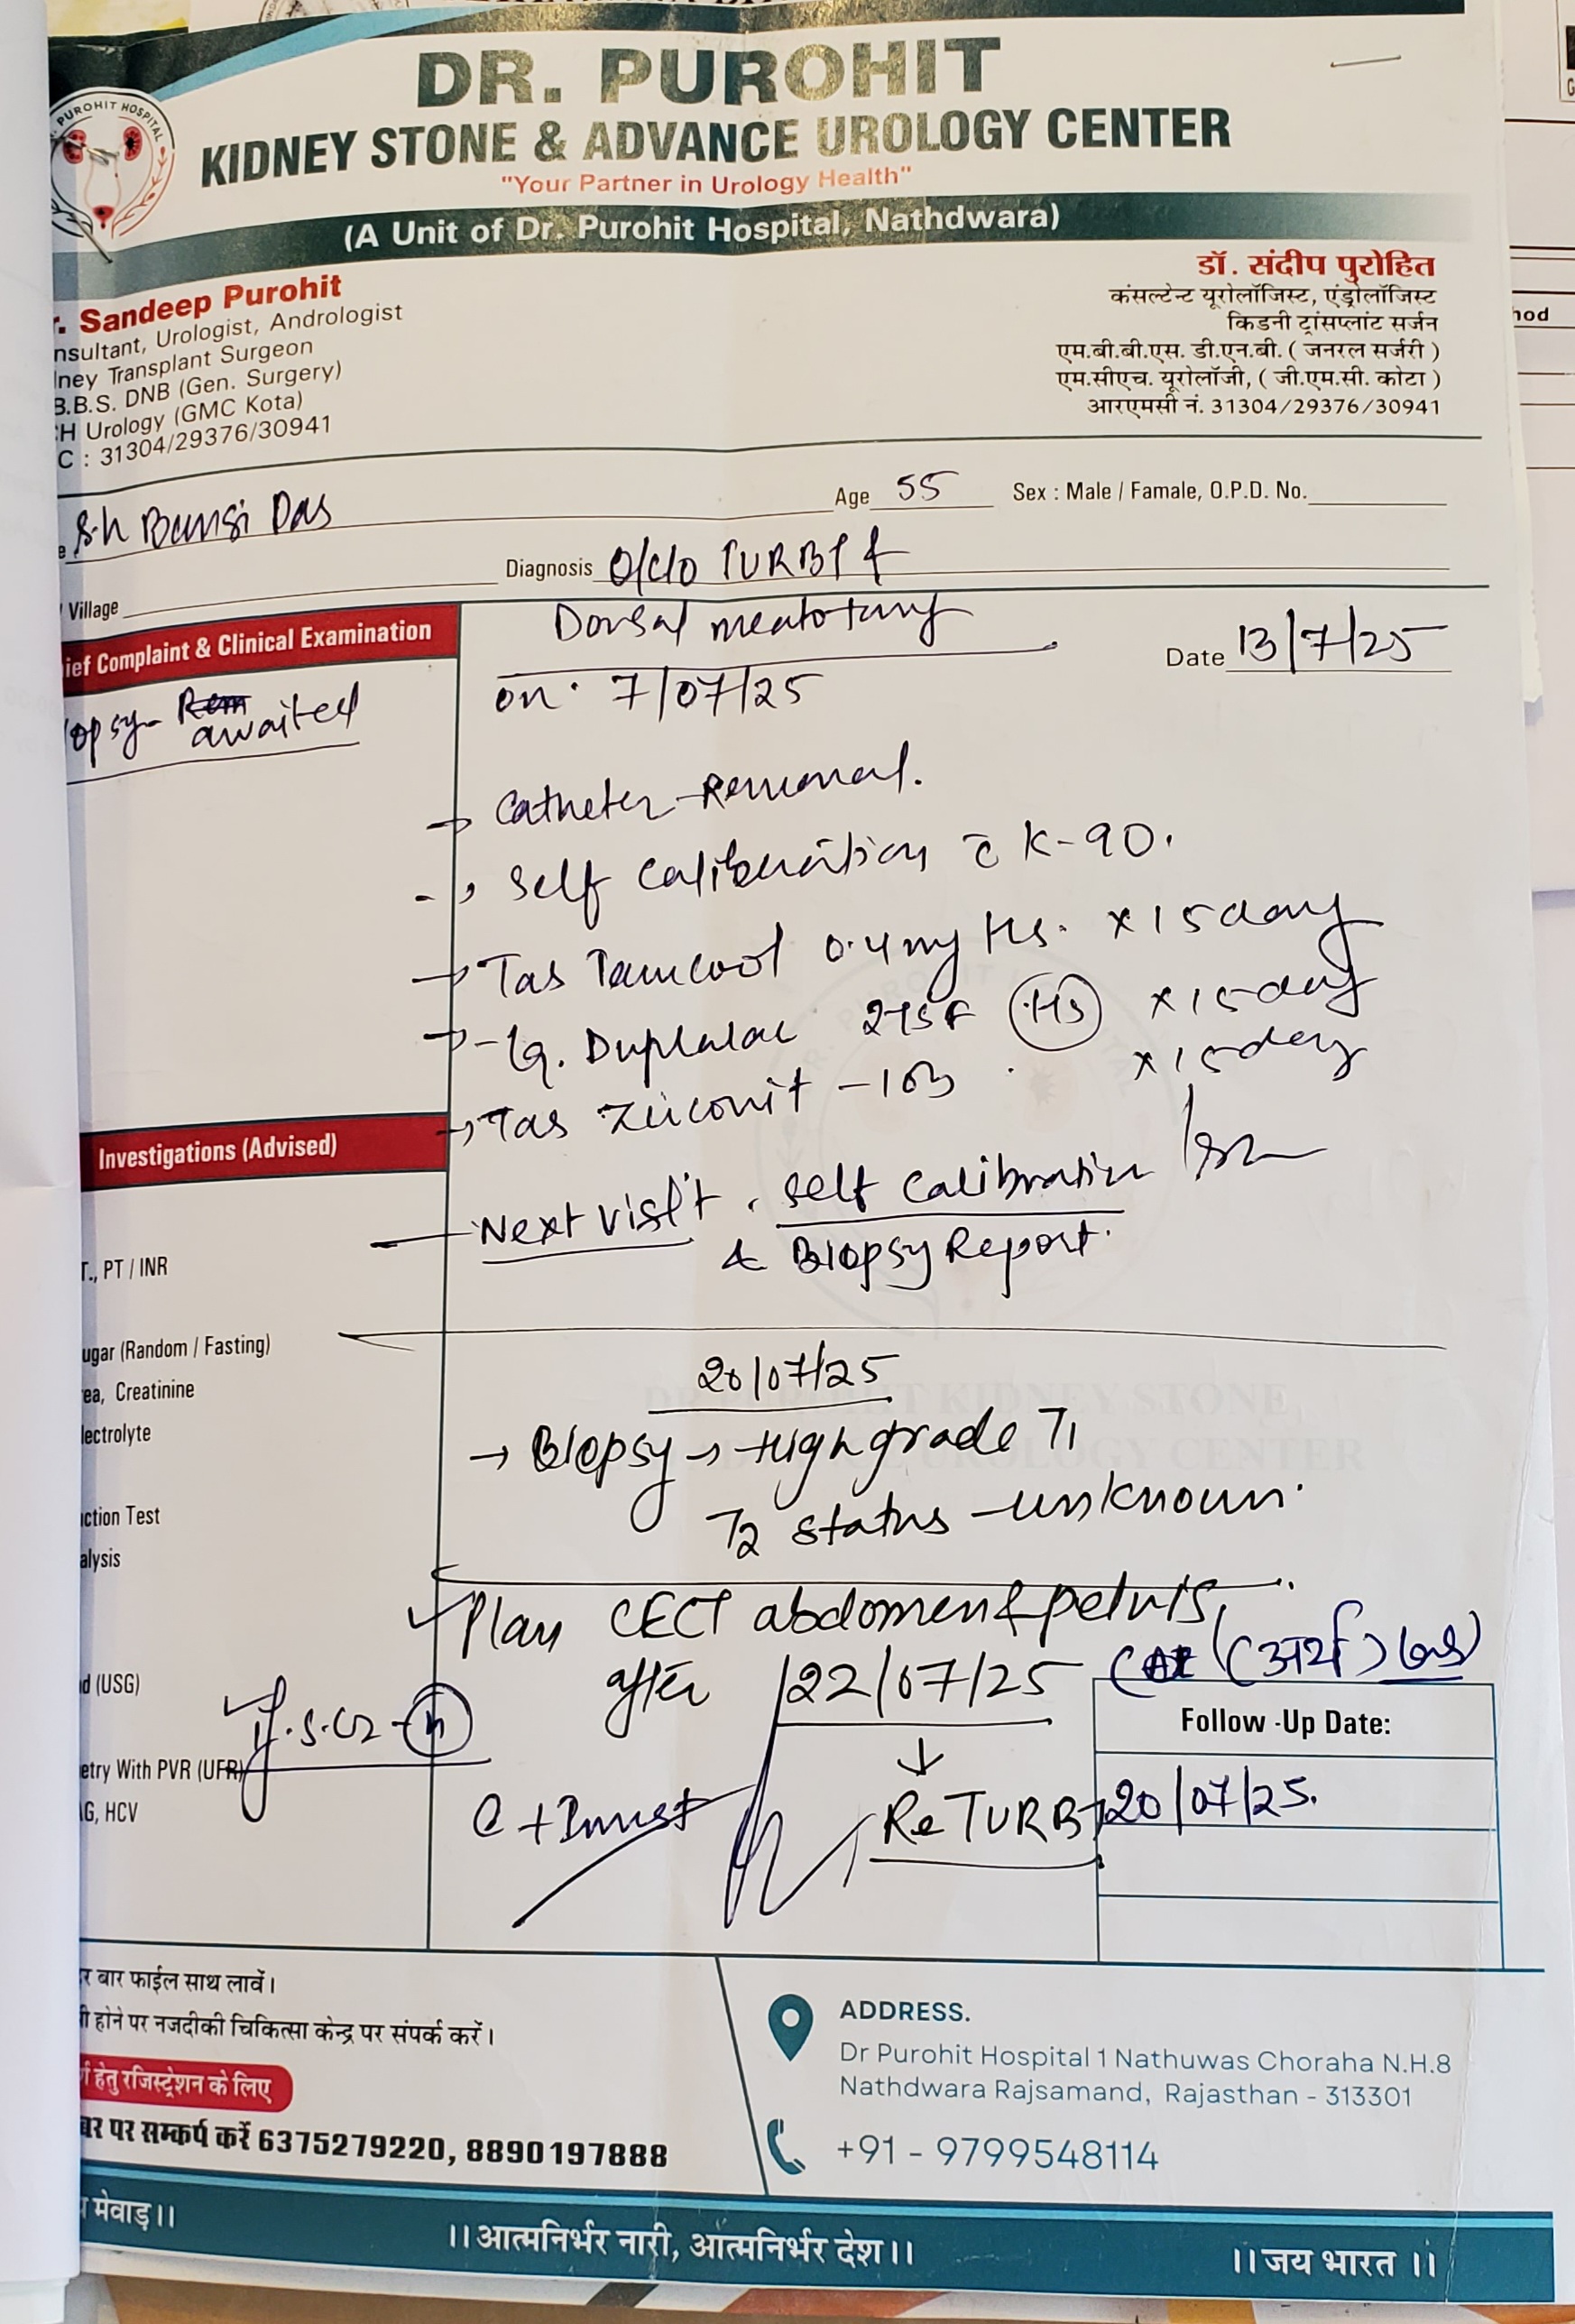 PUROHIT HOSPITAL
DR. PUROHIT
KIDNEY STONE & ADVANCE UROLOGY CENTER
"Your Partner in Urology Health"
(A Unit of Dr. Purohit Hospital, Nathdwara)
r. Sandeep Purohit
nsultant, Urologist, Andrologist
ney Transplant Surgeon
B.B.S. DNB (Gen. Surgery)
H Urology (GMC Kota)
C : 31304/29376/30941
डॉ. संदीप पुरोहित
कंसल्टेन्ट यूरोलॉजिस्ट, एंड्रोलॉजिस्ट
किडनी ट्रांसप्लांट सर्जन
एम.बी.बी.एस. डी.एन.बी. ( जनरल सर्जरी )
एम.सीएच. यूरोलॉजी, ( जी.एम.सी. कोटा )
आरएमसी नं. 31304/29376/30941
hod
e Sh Bansi Das Age 55 Sex : Male / Famale, O.P.D. No.
Village Diagnosis O/c/o TURBT &
Dorsal meatotomy
on. 7/07/25
Date 13/7/25
ief Complaint & Clinical Examination
iopsy- awaited
→ Catheter Removal.
→ Self Calibration c̄ K-90.
→ Tab 0.4mg Hs. x 15 day
→ Lq. Duphalac 2TSF HS x 15 day
→ Tab x 15 day
Next visit . self Calibration
& Biopsy Report.
Investigations (Advised)
T., PT / INR
ugar (Random / Fasting)
ea, Creatinine
lectrolyte
nction Test
alysis
d (USG)
etry With PVR (UFR)
AG, HCV
20/07/25
→ Biopsy → High grade T1
T2 status - unknown.
Plan CECT abdomen & pelvis
after 22/07/25
↓
Re TURBT
S. Cr -
Follow -Up Date:
20/07/25.
र बार फाईल साथ लावें।
ी होने पर नजदीकी चिकित्सा केन्द्र पर संपर्क करें।
हेतु रजिस्ट्रेशन के लिए
बर पर सम्कर्प करें 6375279220, 8890197888
ADDRESS.
Dr Purohit Hospital 1 Nathuwas Choraha N.H.8
Nathdwara Rajsamand, Rajasthan - 313301
+91 - 9799548114
मेवाड़।।
।।आत्मनिर्भर नारी, आत्मनिर्भर देश।।
।।जय भारत ।।